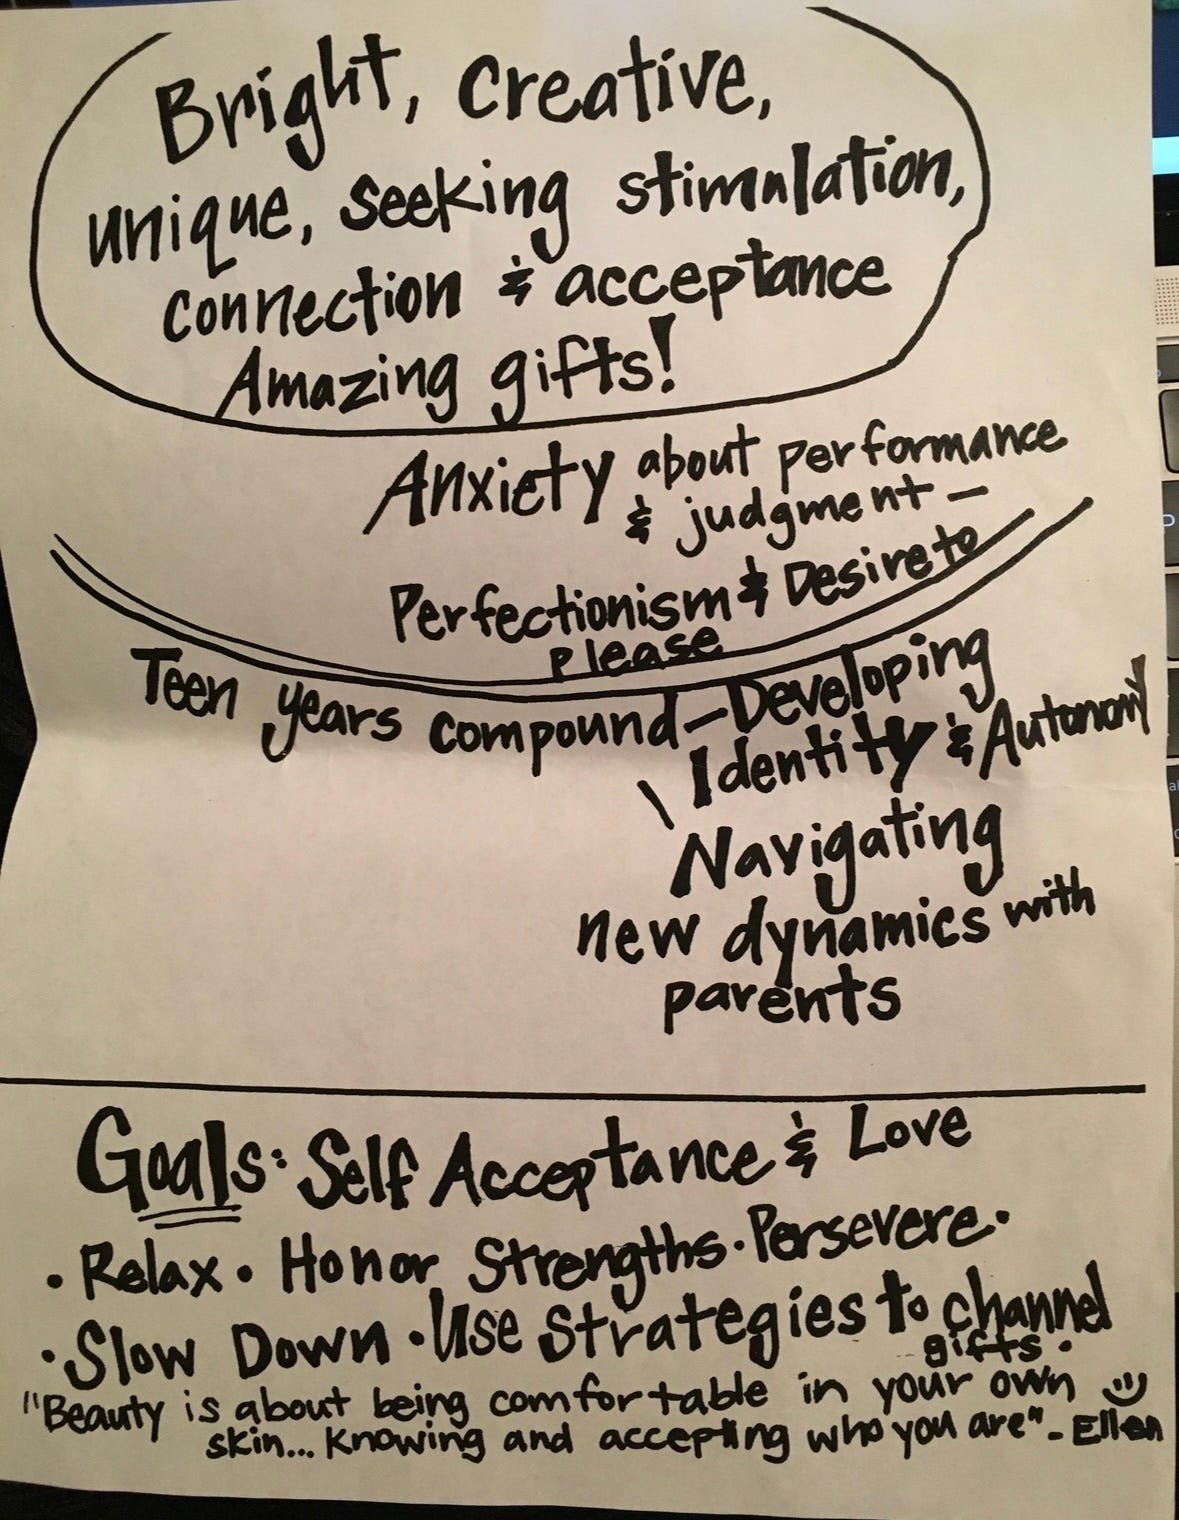 Bright, creative,
unique, seeking stimulation,
connection & acceptance
Amazing gifts!
Anxiety about performance
& judgment –
Perfectionism & Desire to
please
Teen years compound – Developing
Identity & Autonomy
\ Navigating
new dynamics with
parents
Goals: Self Acceptance & Love
• Relax • Honor Strengths • Persevere •
• Slow Down • Use Strategies to channel
gifts •
"Beauty is about being comfortable in your own
skin... Knowing and accepting who you are" - Ellen